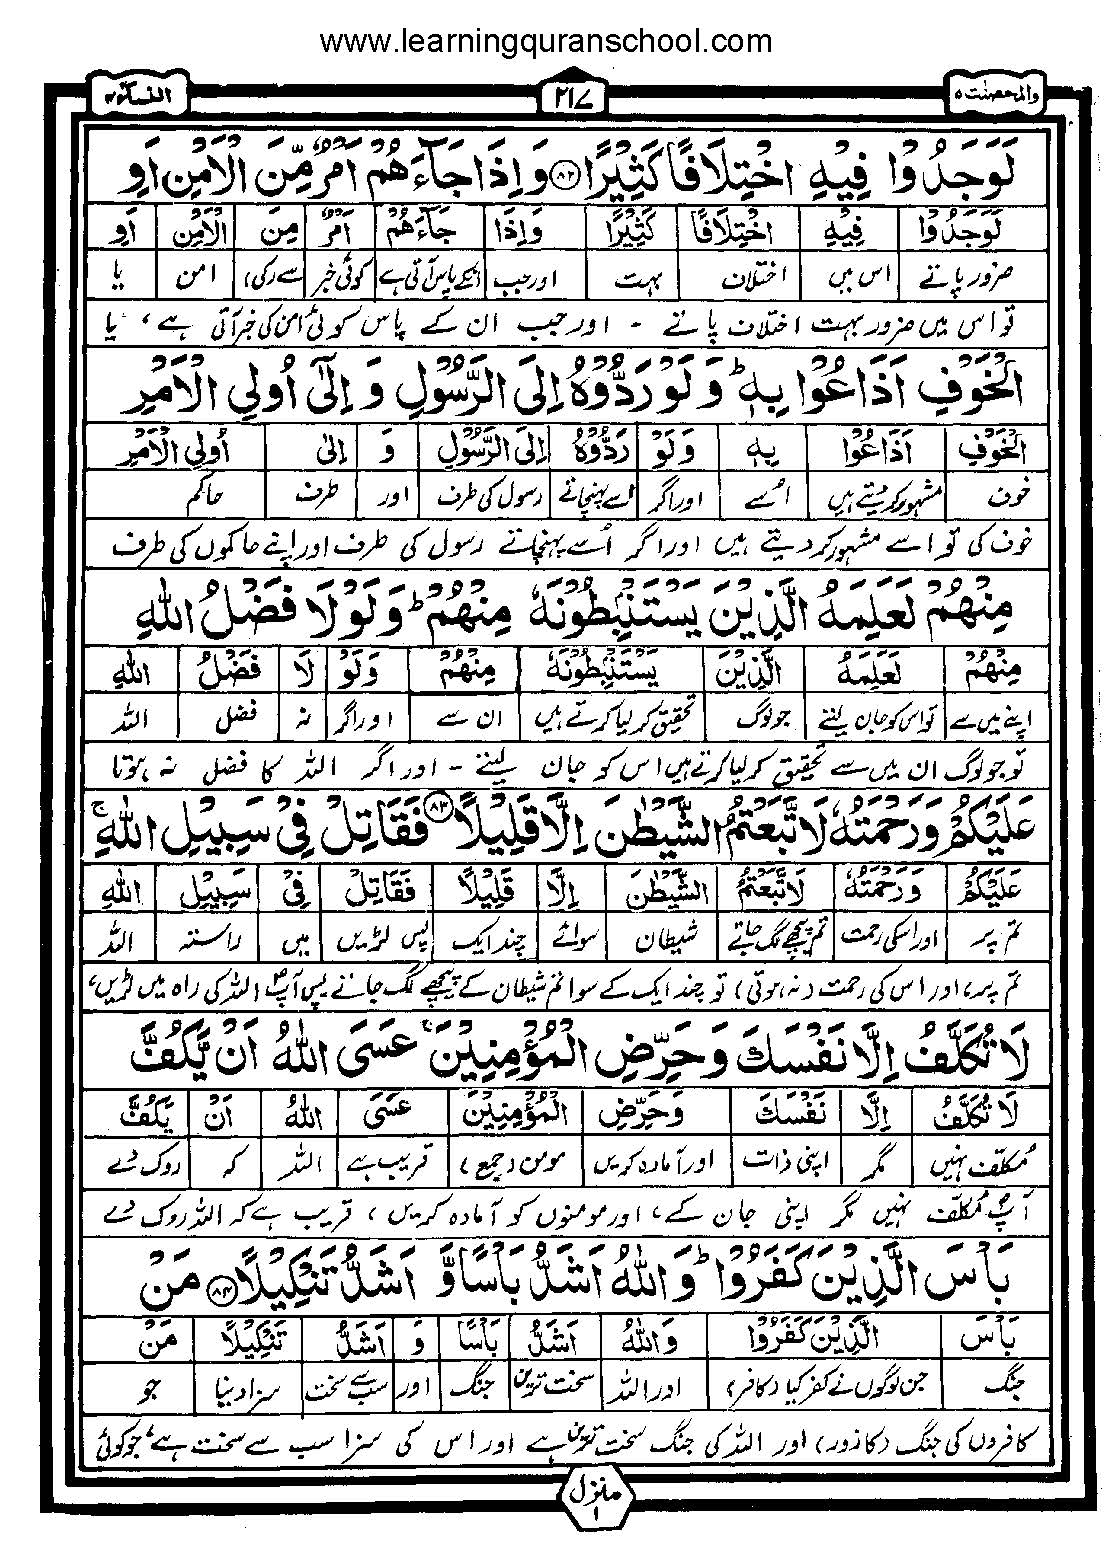 www.learningquranschool.com
والمحصنت ۵ ۲۱۷ النسآء ۴
لَوَجَدُوْا فِيْهِ اخْتِلَافًا كَثِيْرًا ﴿۸۲﴾ وَاِذَا جَآءَهُمْ اَمْرٌ مِّنَ الْاَمْنِ اَوِ
لَوَجَدُوْا فِيْهِ اخْتِلَافًا كَثِيْرًا وَاِذَا جَآءَهُمْ اَمْرٌ مِّنَ الْاَمْنِ اَوِ
ضرور پاتے اس میں اختلاف بہت اور جب انکے پاس آتی ہے کوئی خبر سے (کی) امن یا
تو اس میں ضرور بہت اختلاف پاتے - اور جب ان کے پاس کوئی امن کی خبر آتی ہے، یا
الْخَوْفِ اَذَاعُوْا بِهٖ ؕ وَلَوْ رَدُّوْهُ اِلَى الرَّسُوْلِ وَ اِلٰٓى اُولِي الْاَمْرِ
الْخَوْفِ اَذَاعُوْا بِهٖ وَلَوْ رَدُّوْهُ اِلَى الرَّسُوْلِ وَ اِلٰى اُولِي الْاَمْرِ
خوف مشہور کر دیتے ہیں اُسے اور اگر اسے پہنچاتے رسول کی طرف اور طرف حاکم
خوف کی تو اسے مشہور کر دیتے ہیں اور اگر اُسے پہنچاتے رسول کی طرف اور اپنے حاکموں کی طرف
مِنْهُمْ لَعَلِمَهُ الَّذِيْنَ يَسْتَنْۢبِطُوْنَهٗ مِنْهُمْ ؕ وَلَوْلَا فَضْلُ اللّٰهِ
مِنْهُمْ لَعَلِمَهُ الَّذِيْنَ يَسْتَنْۢبِطُوْنَهٗ مِنْهُمْ وَلَوْ لَا فَضْلُ اللّٰهِ
اپنے میں سے تو اس کو جان لیتے جو لوگ تحقیق کر لیا کرتے ہیں ان سے اور اگر نہ فضل اللہ
تو جو لوگ ان میں سے تحقیق کر لیا کرتے ہیں اس کو جان لیتے - اور اگر اللہ کا فضل نہ ہوتا
عَلَيْكُمْ وَرَحْمَتُهٗ لَاتَّبَعْتُمُ الشَّيْطٰنَ اِلَّا قَلِيْلًا ﴿۸۳﴾ فَقَاتِلْ فِيْ سَبِيْلِ اللّٰهِ ۚ
عَلَيْكُمْ وَرَحْمَتُهٗ لَاتَّبَعْتُمُ الشَّيْطٰنَ اِلَّا قَلِيْلًا فَقَاتِلْ فِيْ سَبِيْلِ اللّٰهِ
تم پر اور اسکی رحمت تم پیچھے لگ جاتے شیطان سوائے چند ایک پس لڑیں میں راستہ اللہ
تم پر، اور اس کی رحمت (نہ ہوتی) تو چند ایک کے سوا تم شیطان کے پیچھے لگ جاتے پس آپؐ اللہ کی راہ میں لڑیں،
لَا تُكَلَّفُ اِلَّا نَفْسَكَ وَحَرِّضِ الْمُؤْمِنِيْنَ ۚ عَسَى اللّٰهُ اَنْ يَّكُفَّ
لَا تُكَلَّفُ اِلَّا نَفْسَكَ وَحَرِّضِ الْمُؤْمِنِيْنَ عَسَى اللّٰهُ اَنْ يَّكُفَّ
مکلّف نہیں مگر اپنی ذات اور آمادہ کریں مومن (جمع) قریب ہے اللہ کہ روک دے
آپؐ مکلّف نہیں مگر اپنی جان کے، اور مومنوں کو آمادہ کریں، قریب ہے کہ اللہ روک دے
بَاْسَ الَّذِيْنَ كَفَرُوْا ؕ وَاللّٰهُ اَشَدُّ بَاْسًا وَّ اَشَدُّ تَنْكِيْلًا ﴿۸۴﴾ مَنْ
بَاْسَ الَّذِيْنَ كَفَرُوْا وَاللّٰهُ اَشَدُّ بَاْسًا وَ اَشَدُّ تَنْكِيْلًا مَنْ
جنگ جن لوگوں نے کفر کیا (کافر) اور اللہ سخت ترین جنگ اور سب سے سخت سزا دینا جو
کافروں کی جنگ (کا زور) اور اللہ کی جنگ سخت ترین ہے اور اس کی سزا سب سے سخت ہے، جو کوئی
منزل ۱